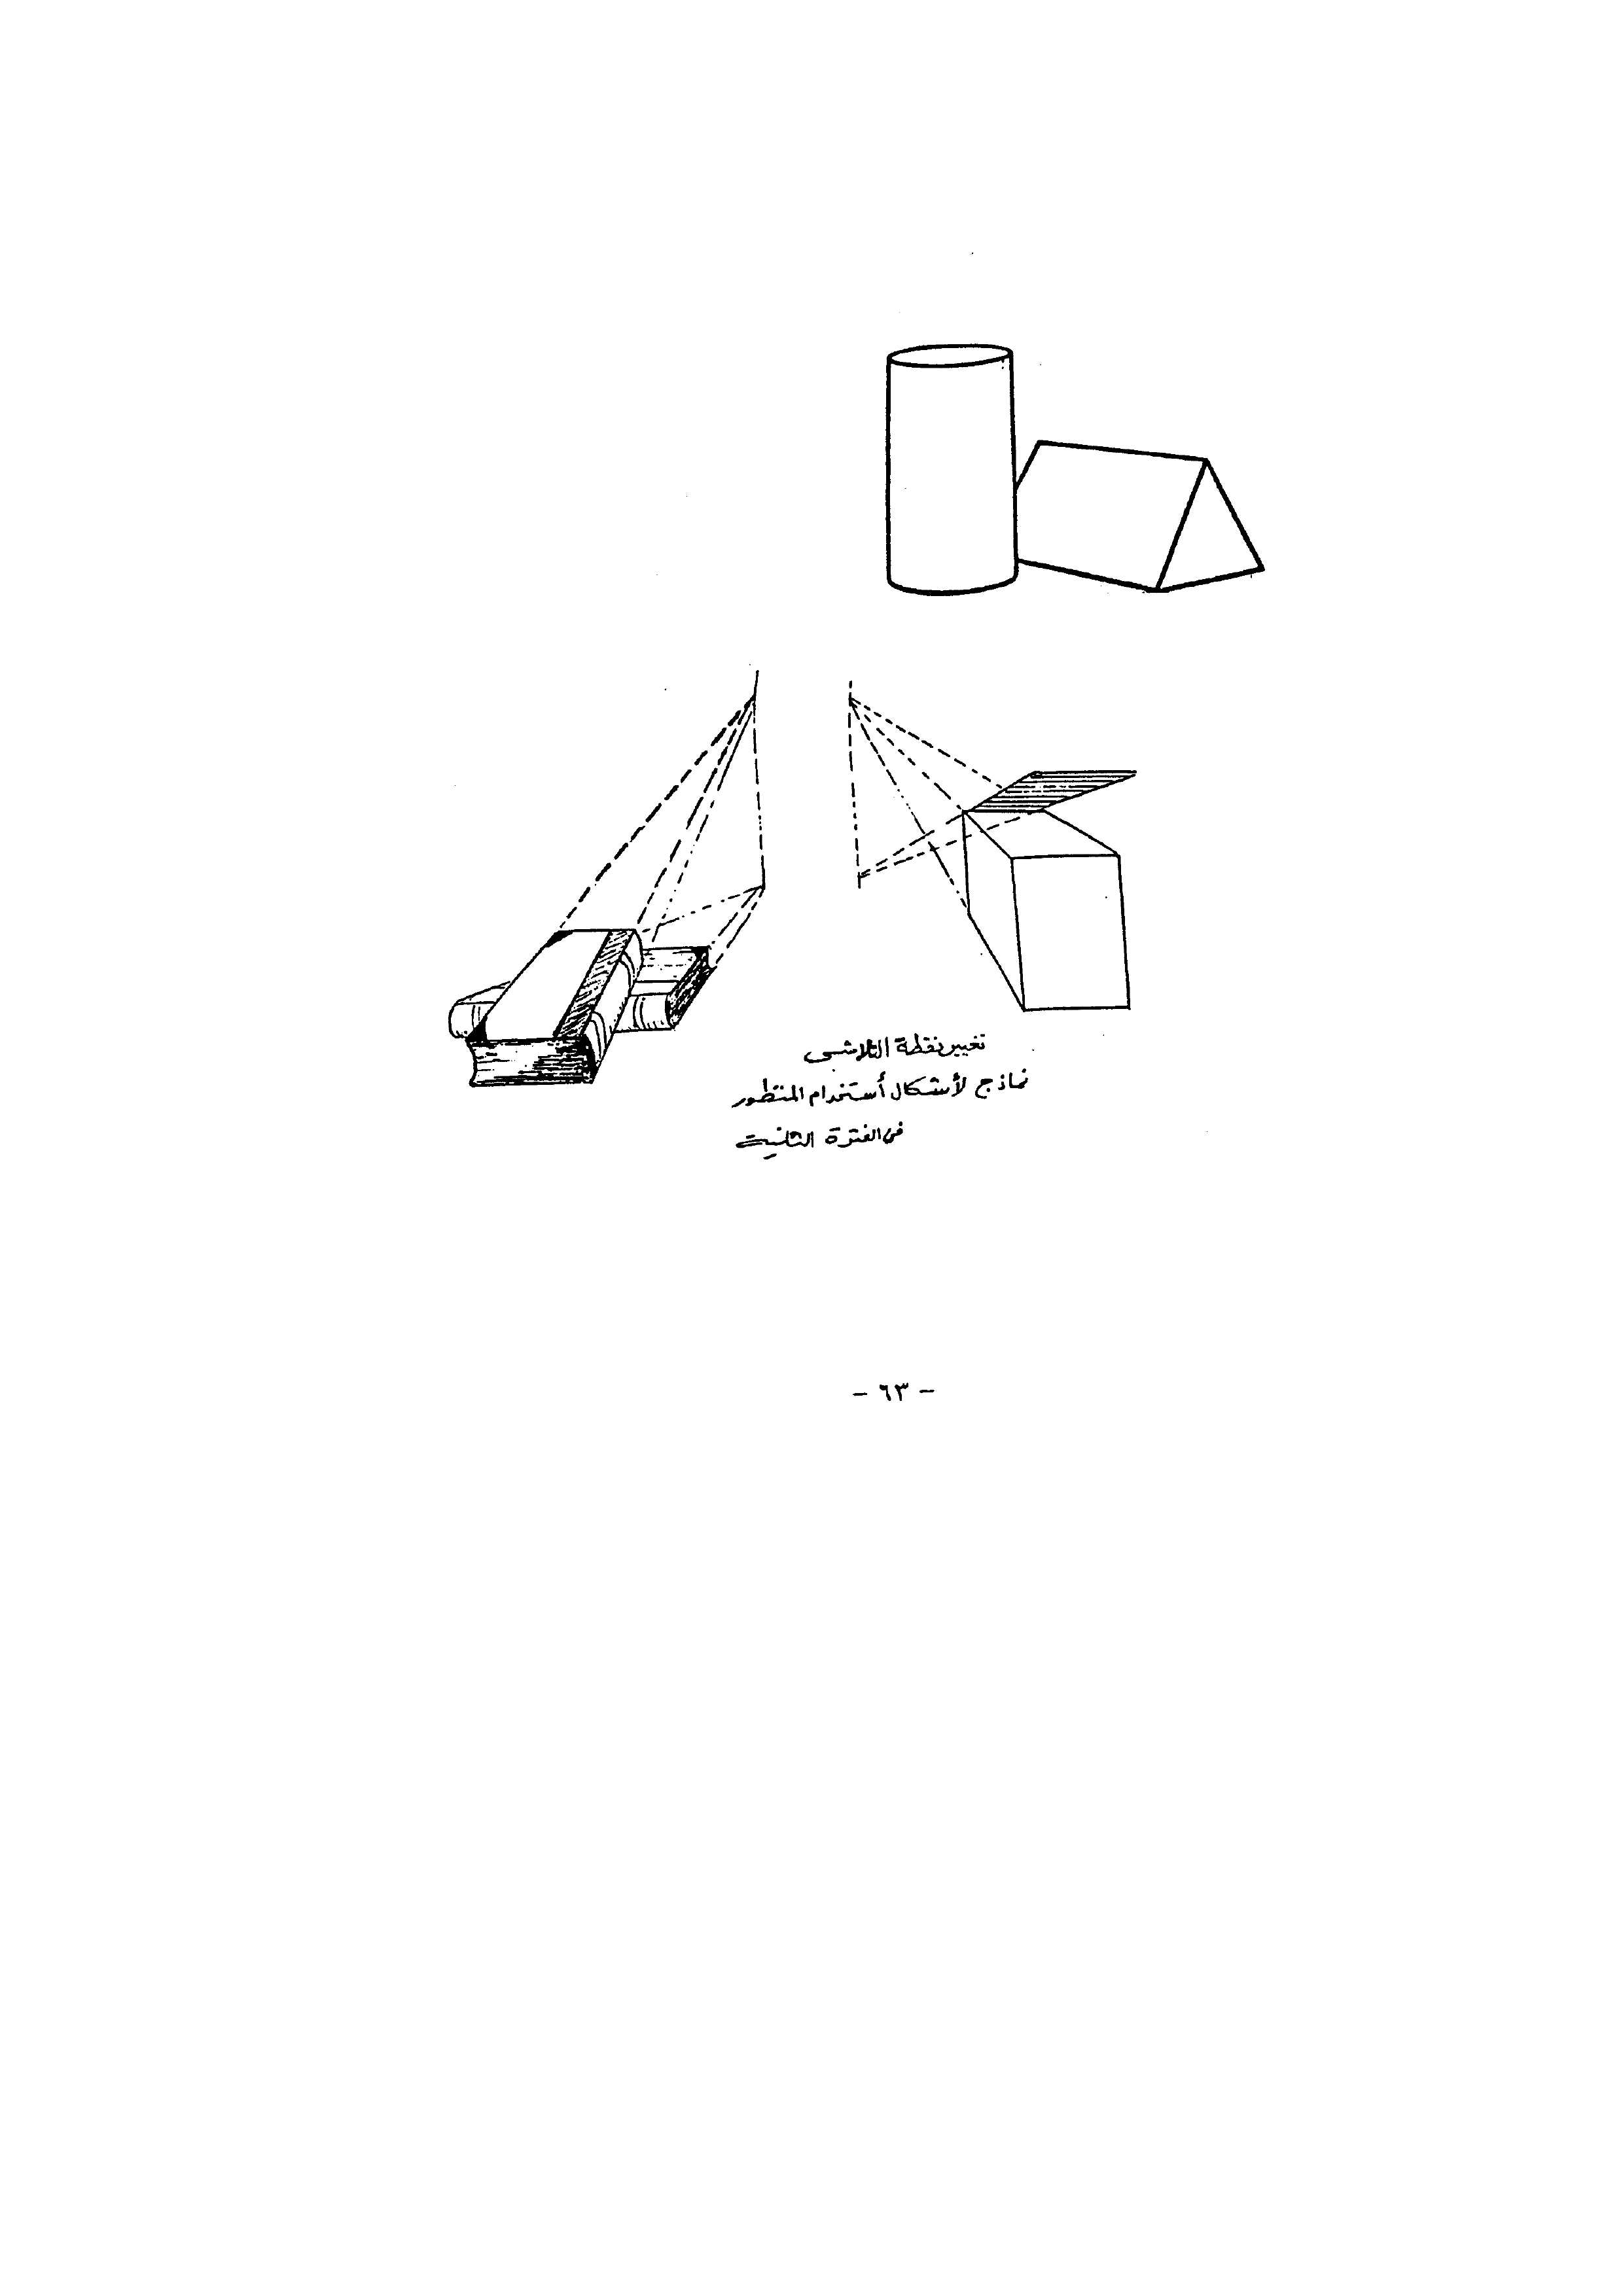 تغيير نقطة التلاشى
نماذج لأشكال أستخدام المنظور
فى الفترة الثانية
- ٦٣ -